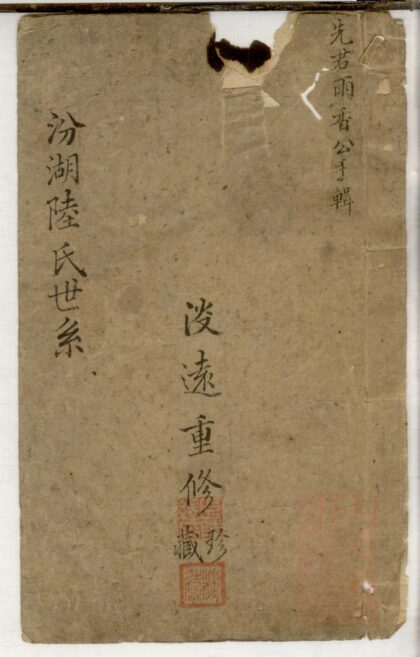 先君雨香公手輯
遠重修
珍藏
汾湖陸氏世系